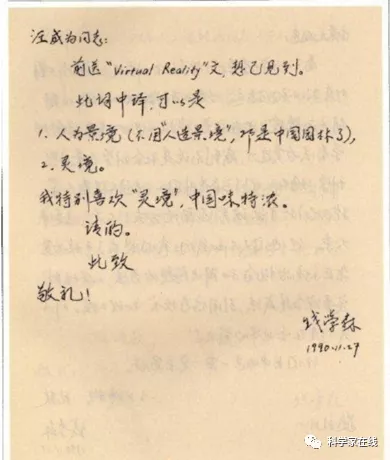 汪成为同志:
前送“Virtual Reality”文,想已见到。
此词中译,可以是
1. 人为景境(不用“人造景境”,那是中国园林了);
2. 灵境。
我特别喜欢“灵境”,中国味特浓。
请酌。
此致
敬礼!
钱学森
1990.11.27
科学家在线